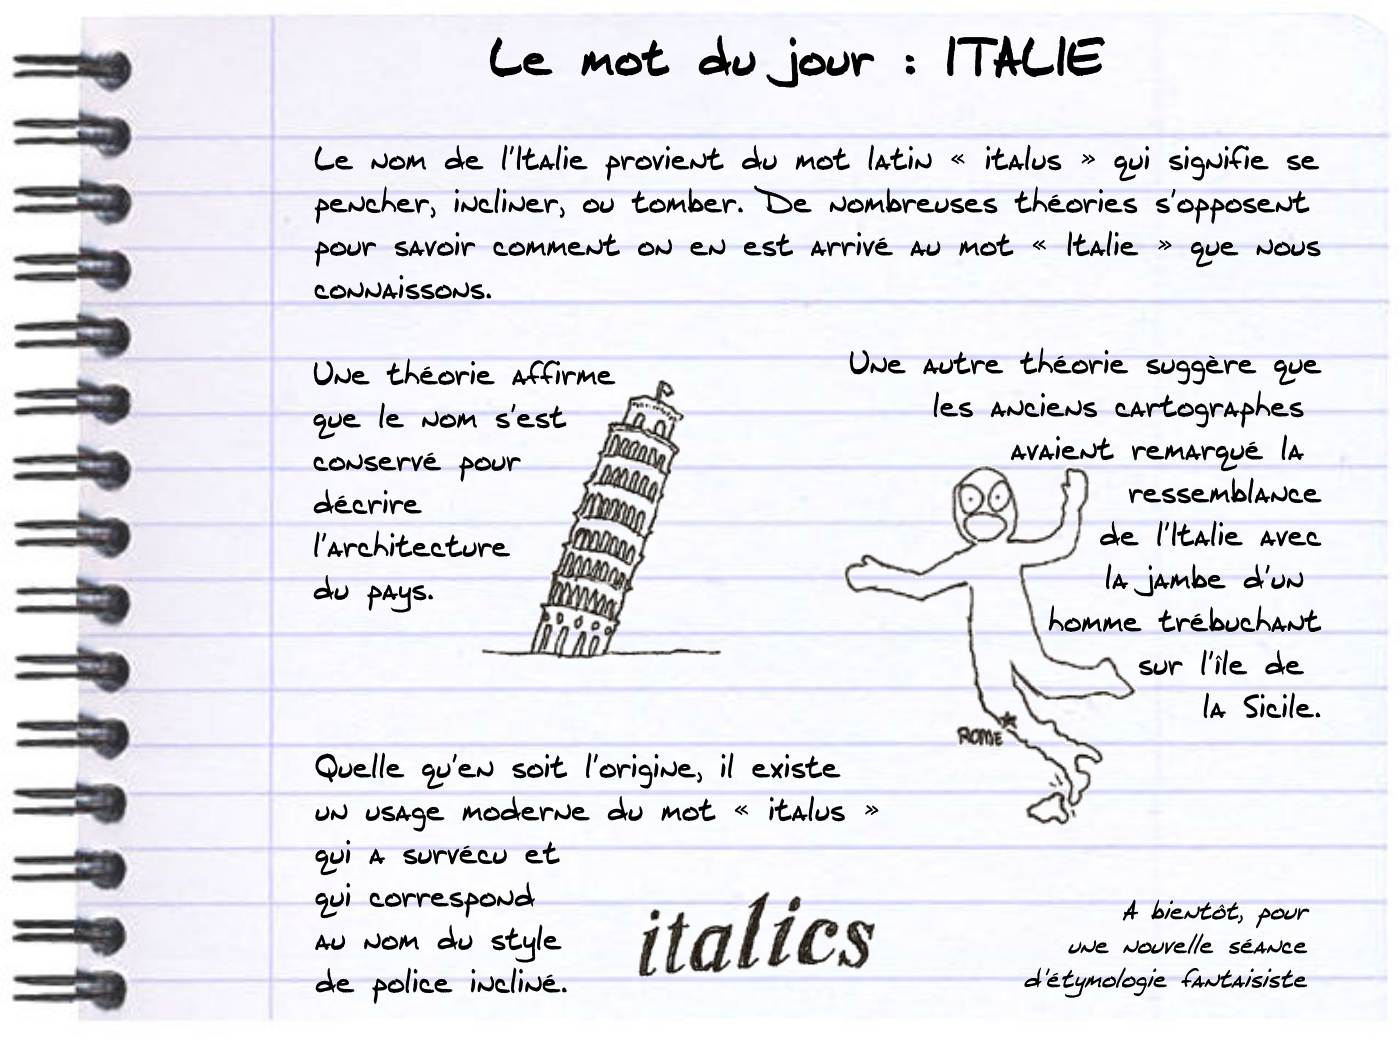 Le mot du jour : ITALIE
Le nom de l'Italie provient du mot latin « italus » qui signifie se
pencher, incliner, ou tomber. De nombreuses théories s'opposent
pour savoir comment on en est arrivé au mot « Italie » que nous
connaissons.
Une théorie affirme
que le nom s'est
conservé pour
décrire
l'architecture
du pays.
Une autre théorie suggère que
les anciens cartographes
avaient remarqué la
ressemblance
de l'Italie avec
la jambe d'un
homme trébuchant
sur l'île de
la Sicile.
ROME
Quelle qu'en soit l'origine, il existe
un usage moderne du mot « italus »
qui a survécu et
qui correspond
au nom du style
de police incliné.
italics
A bientôt, pour
une nouvelle séance
d'étymologie fantaisiste